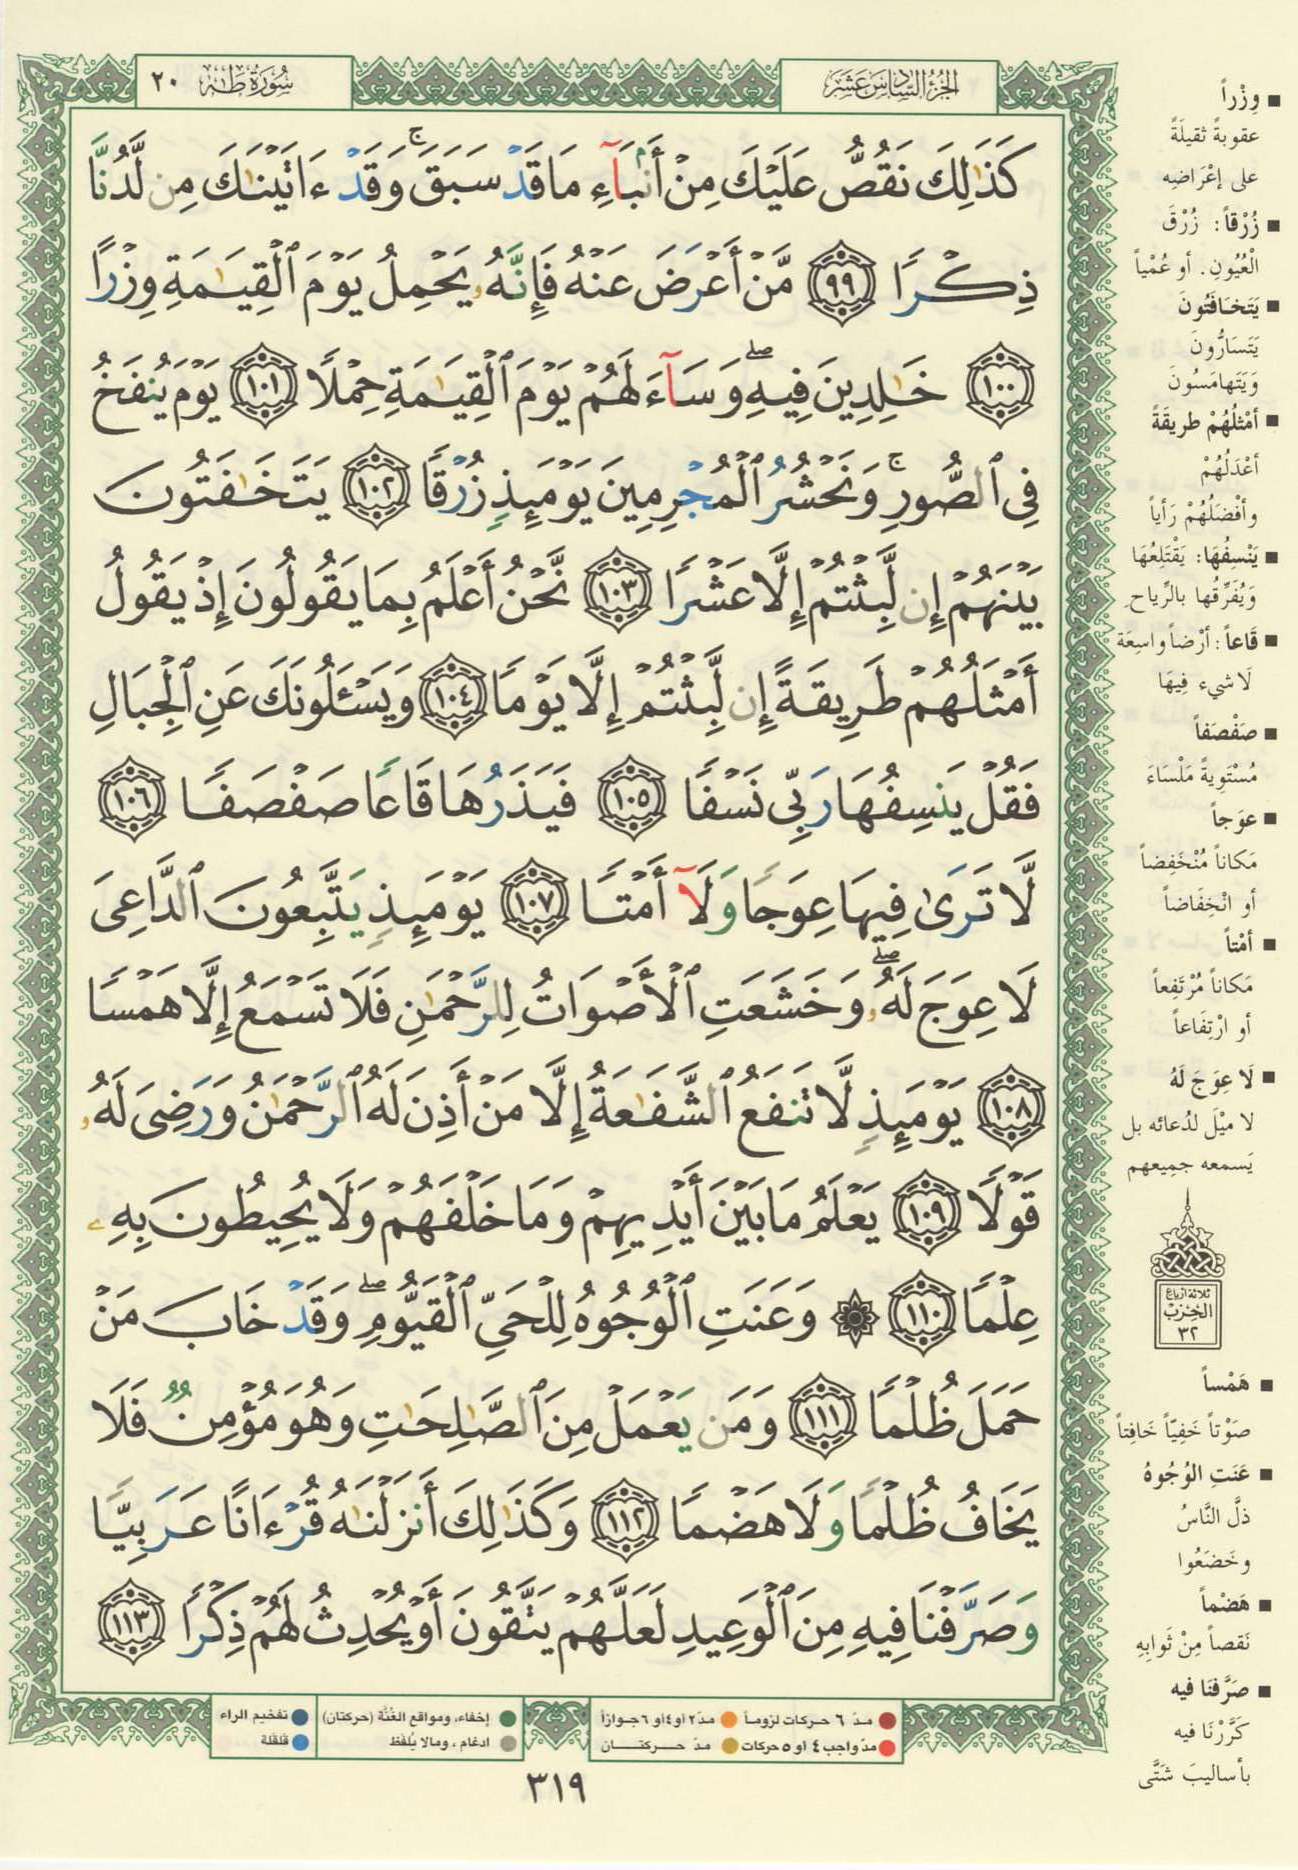 سُورَةُ طه ٢٠
الجُزْءُ السَّادِسَ عَشَرَ
كَذَٰلِكَ نَقُصُّ عَلَيْكَ مِنْ أَنۢبَآءِ مَا قَدْ سَبَقَ ۚ وَقَدْ ءَاتَيْنَٰكَ مِن لَّدُنَّا
ذِكْرًا ﴿٩٩﴾ مَّنْ أَعْرَضَ عَنْهُ فَإِنَّهُۥ يَحْمِلُ يَوْمَ ٱلْقِيَٰمَةِ وِزْرًا
﴿١٠٠﴾ خَٰلِدِينَ فِيهِ ۖ وَسَآءَ لَهُمْ يَوْمَ ٱلْقِيَٰمَةِ حِمْلًا ﴿١٠١﴾ يَوْمَ يُنفَخُ
فِى ٱلصُّورِ ۚ وَنَحْشُرُ ٱلْمُجْرِمِينَ يَوْمَئِذٍ زُرْقًا ﴿١٠٢﴾ يَتَخَٰفَتُونَ
بَيْنَهُمْ إِن لَّبِثْتُمْ إِلَّا عَشْرًا ﴿١٠٣﴾ نَّحْنُ أَعْلَمُ بِمَا يَقُولُونَ إِذْ يَقُولُ
أَمْثَلُهُمْ طَرِيقَةً إِن لَّبِثْتُمْ إِلَّا يَوْمًا ﴿١٠٤﴾ وَيَسْـَٔلُونَكَ عَنِ ٱلْجِبَالِ
فَقُلْ يَنسِفُهَا رَبِّى نَسْفًا ﴿١٠٥﴾ فَيَذَرُهَا قَاعًا صَفْصَفًا ﴿١٠٦﴾
لَّا تَرَىٰ فِيهَا عِوَجًا وَلَآ أَمْتًا ﴿١٠٧﴾ يَوْمَئِذٍ يَتَّبِعُونَ ٱلدَّاعِىَ
لَا عِوَجَ لَهُۥ ۖ وَخَشَعَتِ ٱلْأَصْوَاتُ لِلرَّحْمَٰنِ فَلَا تَسْمَعُ إِلَّا هَمْسًا
﴿١٠٨﴾ يَوْمَئِذٍ لَّا تَنفَعُ ٱلشَّفَٰعَةُ إِلَّا مَنْ أَذِنَ لَهُ ٱلرَّحْمَٰنُ وَرَضِىَ لَهُۥ
قَوْلًا ﴿١٠٩﴾ يَعْلَمُ مَا بَيْنَ أَيْدِيهِمْ وَمَا خَلْفَهُمْ وَلَا يُحِيطُونَ بِهِۦ
عِلْمًا ﴿١١٠﴾ ۞ وَعَنَتِ ٱلْوُجُوهُ لِلْحَىِّ ٱلْقَيُّومِ ۖ وَقَدْ خَابَ مَنْ
حَمَلَ ظُلْمًا ﴿١١١﴾ وَمَن يَعْمَلْ مِنَ ٱلصَّٰلِحَٰتِ وَهُوَ مُؤْمِنٌ فَلَا
يَخَافُ ظُلْمًا وَلَا هَضْمًا ﴿١١٢﴾ وَكَذَٰلِكَ أَنزَلْنَٰهُ قُرْءَانًا عَرَبِيًّا
وَصَرَّفْنَا فِيهِ مِنَ ٱلْوَعِيدِ لَعَلَّهُمْ يَتَّقُونَ أَوْ يُحْدِثُ لَهُمْ ذِكْرًا ﴿١١٣﴾
■ وِزْراً
عقوبةً ثقيلَةً
على إعْرَاضِه
■ زُرْقاً: زُرْقَ
الْعُيُونِ. أو عُمْياً
■ يَتَخَافَتُونَ
يَتَسَارُّونَ
وَيَتَهامَسُونَ
■ أمْثلُهُمْ طريقَةً
أعْدَلُهُمْ
وأفْضَلُهُمْ رَأياً
■ يَنْسِفُهَا: يَقْتَلِعُهَا
وَيُفَرِّقُها بالرِّياح
■ قَاعاً: أرْضاً واسِعَة
لَا شيء فِيهَا
■ صَفْصَفاً
مُسْتَوِيةً مَلْسَاءَ
■ عِوَجاً
مَكاناً مُنْخَفِضاً
أو انْخِفَاضاً
■ أمْتاً
مَكاناً مُرْتَفِعاً
أو ارْتِفَاعاً
■ لَا عِوَجَ لَهُ
لا مَيْلَ لدُعائه بل
يَسمعه جميعهم
ثلاثة أرباع
الحِزْب
٣٢
■ هَمْساً
صَوْتاً خَفِيّاً خَافِتاً
■ عَنَتِ الوُجُوهُ
ذلَّ النَّاسُ
وخَضَعُوا
■ هَضْماً
نَقصاً مِنْ ثَوابِهِ
■ صَرَّفنَا فيه
كَرَّرْنَا فيه
بأساليبَ شَتَّى
مدّ ٦ حركات لزوماً
مدّ ٢ او ٤ او ٦ جوازاً
مدّ واجب ٤ او ٥ حركات
مدّ حركتان
إخفاء، ومواقع الغُنَّة (حركتان)
ادغام، ومالا يُلفَظ
تفخيم الراء
قلقلة
٣١٩